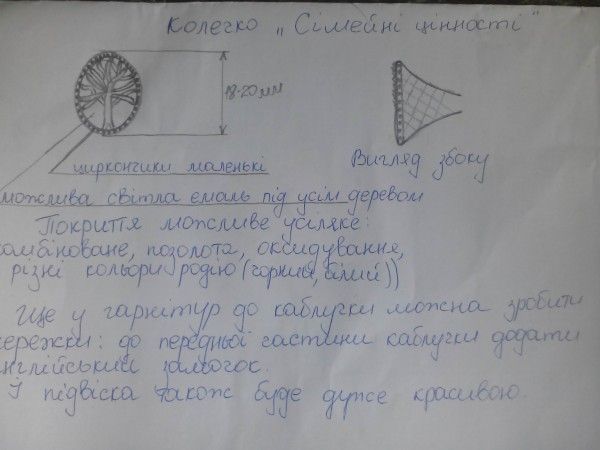 Колечко „Сімейні цінності"
18-20 мм
циркончики маленькі
Вигляд збоку
можлива світла емаль під усім деревом
Покриття можливе усіляке:
комбіноване, позолота, оксидування,
різні кольори родію (чорний, білий))
Ще у гарнітур до каблучки можна зробити
сережки: до передньої частини каблучки додати
англійський замочок.
І підвіска також буде дуже красивою.